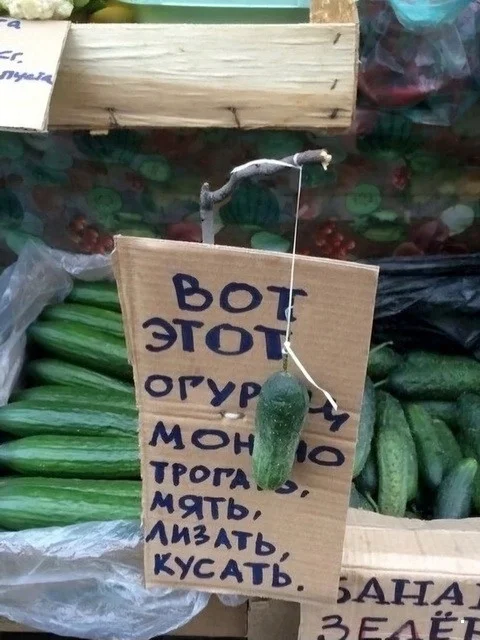 ВОТ
ЭТОТ
ОГУРЕЦ
МОЖНО
ТРОГАТЬ,
МЯТЬ,
ЛИЗАТЬ,
КУСАТЬ.
БАНА
ЗЕЛЁ